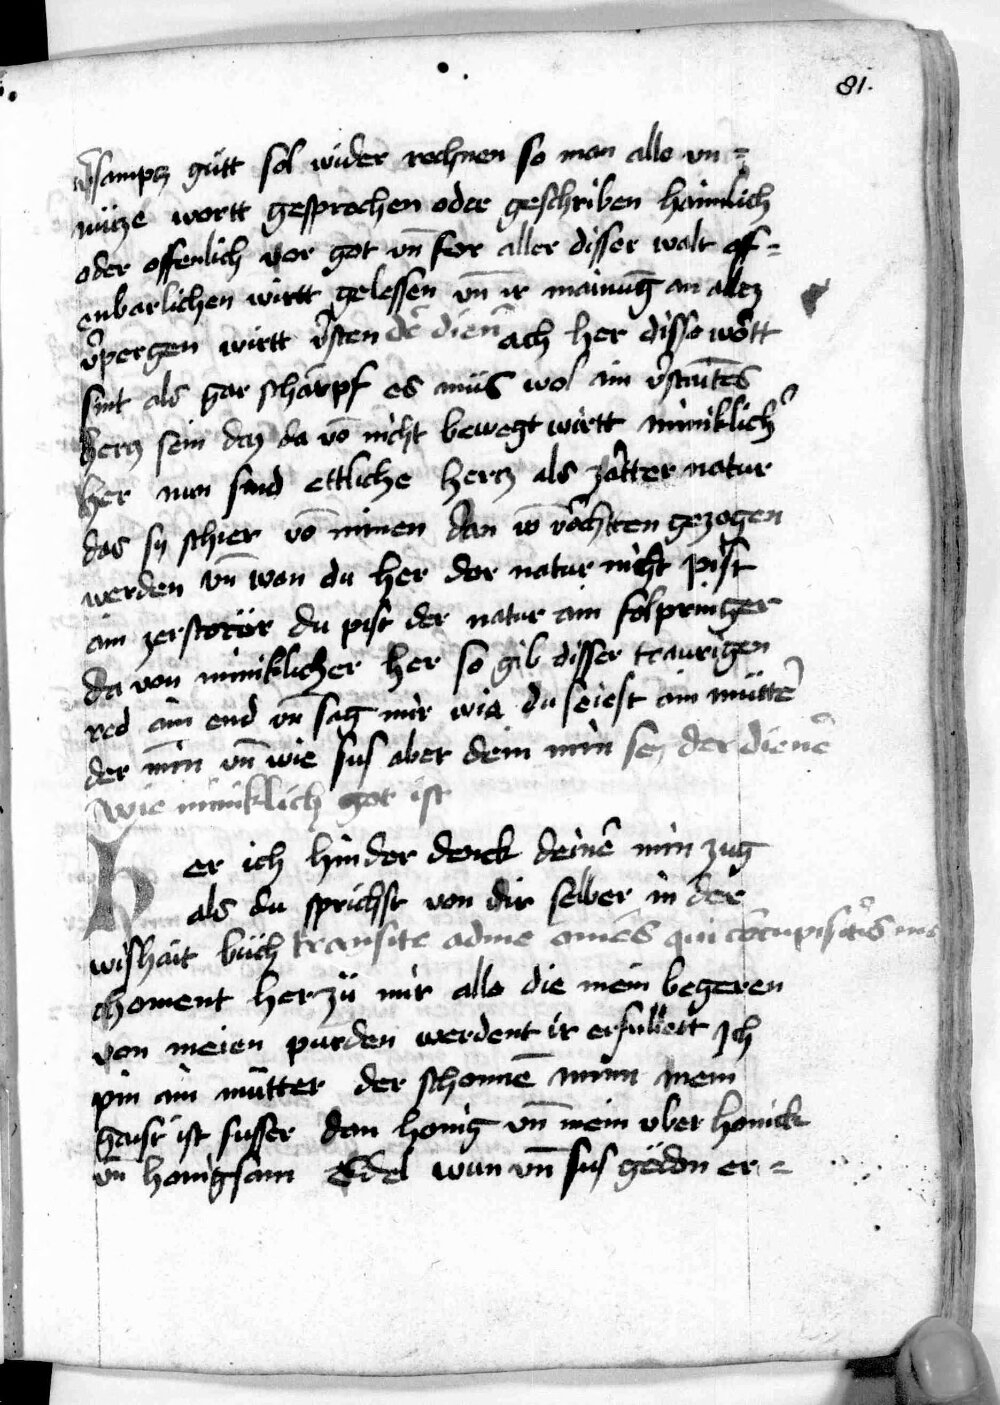 81.
v̉samptz gütt sol wider rechnen so man alle vn=
nütze wortt gesprochen oder geschriben haimlich
oder offenlich vor got vn̄ for aller disser welt off=
enbarlichen wirtt gelessen vn̄ ir mainūg an allez
v̉pergen wirtt v̉sten dē dien̄ ach her disse wőtt
sint als gar scharpf es müs wol ain v̉stain̄tes
hertz sein daz da vō nicht bewegt wirtt miniklich̉
her nun sind ettliche hertz als zartter natur
das sy schier vō minen dan vō vorchten gezogen
werden vn̄ wan du her der natur nicht pist
ain zerstorür du pist der natur ain folpringer
da von miniklicher her so gib disser traurigen
red ain end vn̄ sag mir wie du seiest ain müttē
der min̄ vn̄ wie sus aber dein min sey der dienē
wie miniklich got ist
her ich hinder denck deinē min zug
als du sprichst von dir selber in der
wishait büch transite adme omēs qui cōcupisc̉tis me
choment her zü mir alle die mein begeren
von meien purden werdent ir erfullett Ich
pin ain mütter der schonnē minn mein
gaist ist susser dan honig vn̄ mein vber honick
vn̄ honigsam Edel wun vn̄ sus gëdon er=